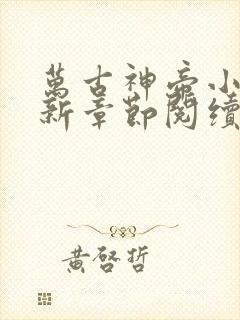 萬古神帝小
新章節閱讀
黃啓哲